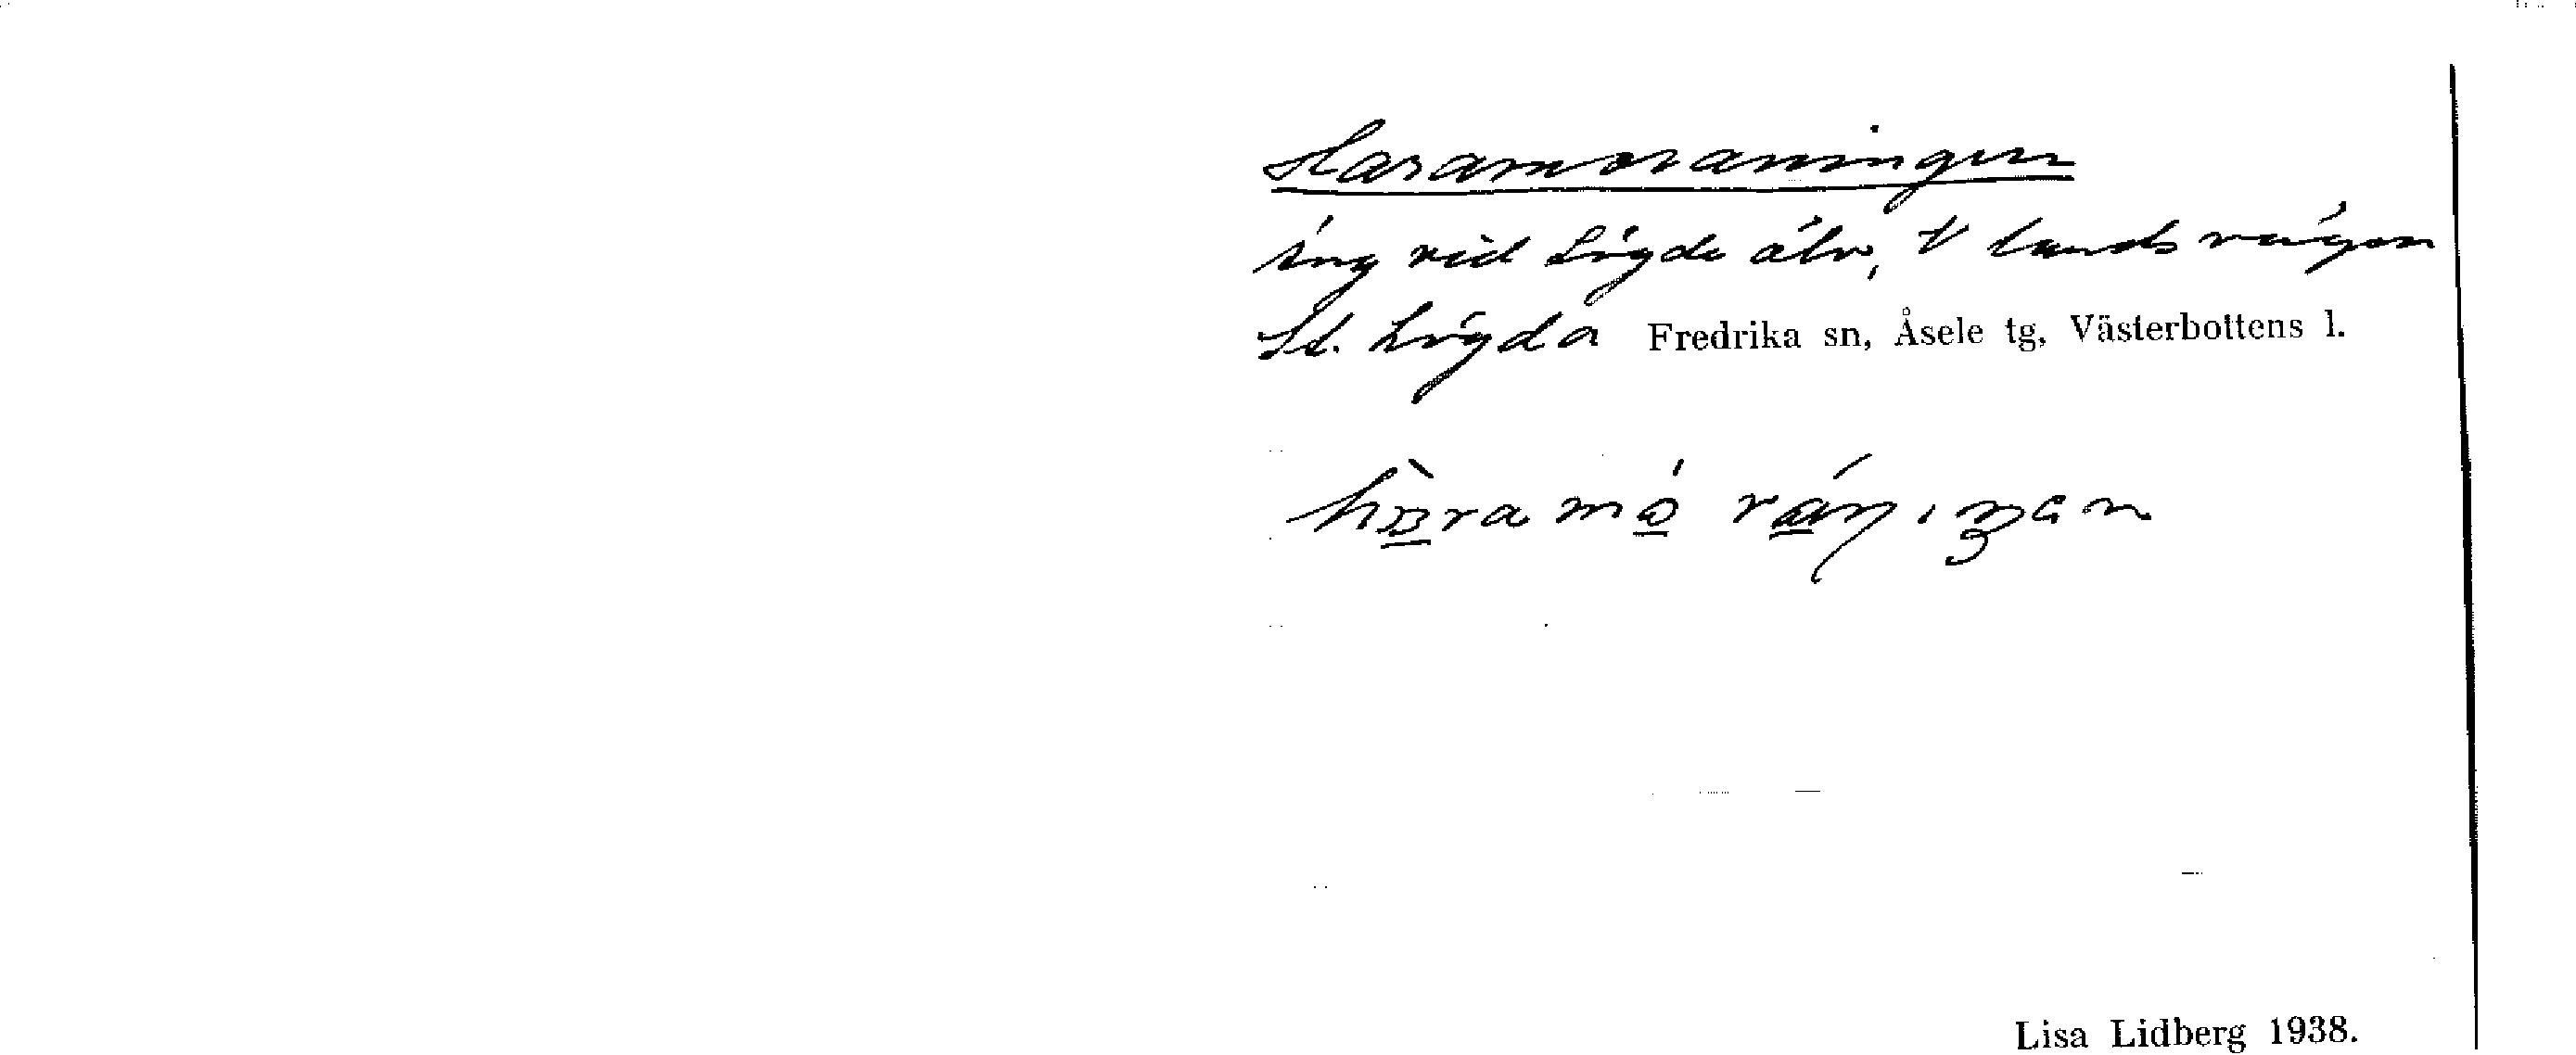 Haramoraningen
äng vid Lögde älv, V landsvägen
St. Lögda Fredrika sn, Åsele tg, Västerbottens l.
Lisa Lidberg 1938.